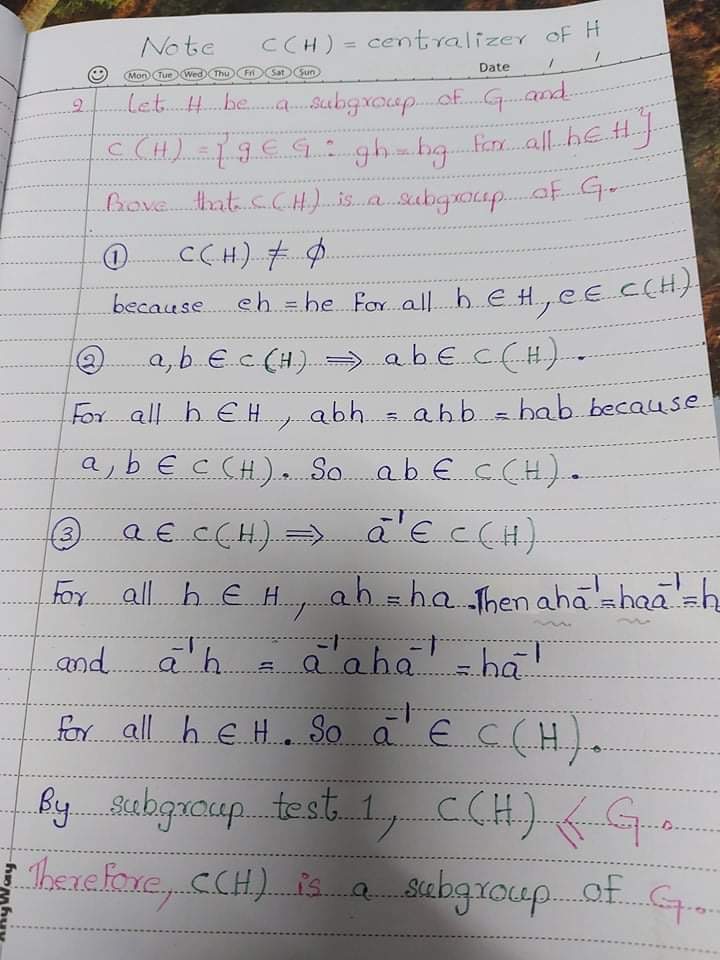 Note C(H) = centralizer of H
Mon Tue Wed Thu Fri Sat Sun Date / /
2 Let H be a subgroup of G and
C(H) = { g ∈ G : gh = hg for all h ∈ H }
Prove that C(H) is a subgroup of G.
① C(H) ≠ ϕ
because eh = he for all h ∈ H, e ∈ C(H)
② a, b ∈ C(H) ⟹ ab ∈ C(H).
For all h ∈ H, abh = ahb = hab because
a, b ∈ C(H). So ab ∈ C(H).
③ a ∈ C(H) ⟹ a⁻¹ ∈ C(H)
For all h ∈ H, ah = ha. Then aha⁻¹ = haa⁻¹ = h
and a⁻¹h = a⁻¹aha⁻¹ = ha⁻¹
for all h ∈ H. So a⁻¹ ∈ C(H).
By subgroup test 1, C(H) ⩽ G.
Therefore, C(H) is a subgroup of G.